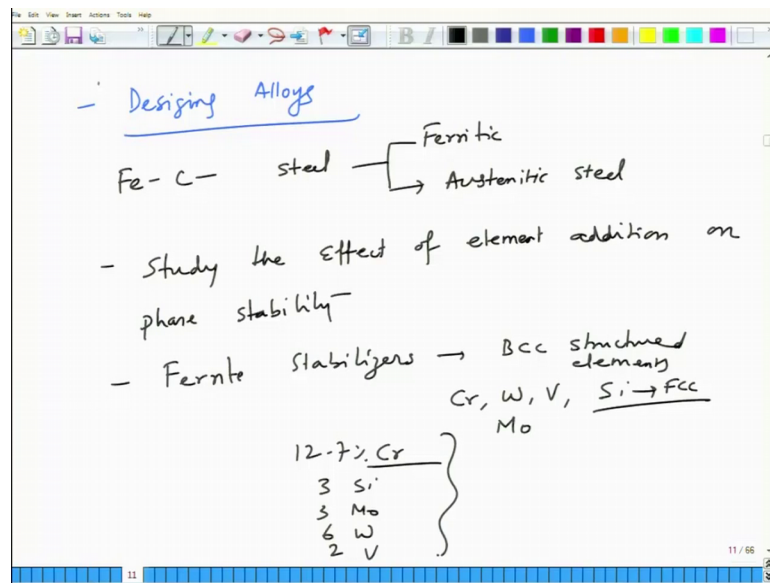 File Edit View Insert Actions Tools Help
B I
- Desiging Alloys
Ferritic
Fe - C - Steel
→ Austenitic steel
- Study the Effect of element addition on
phase stability
- Ferrite Stabilizers → BCC structured
elements
Cr, W, V, Si → FCC
Mo
12.7% Cr
3 Si
3 Mo
6 W
2 V
11 / 66
11